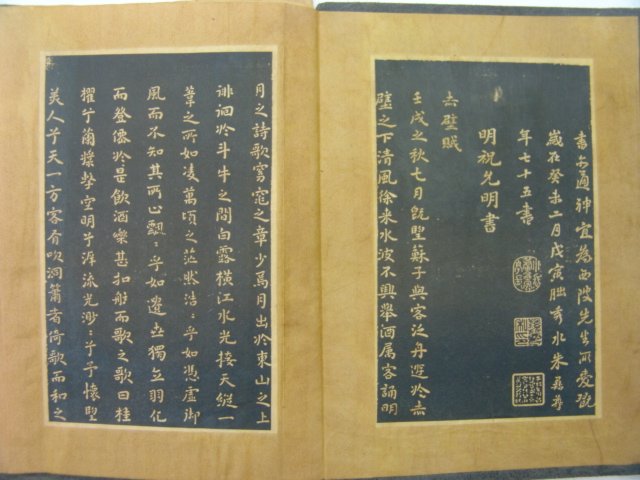 書 通神宜為西陂先生所愛敬
歲在癸未二月戊寅 秀水朱彝尊
年七十五書
明祝允明書
赤壁賦
壬戌之秋七月既望蘇子與客泛舟遊於赤
壁之下清風徐來水波不興舉酒屬客誦明
月之詩歌窈窕之章少焉月出於東山之上
徘徊於斗牛之間白露橫江水光接天縱一
葦之所如凌萬頃之茫然浩〻乎如憑虛御
風而不知其所止飄〻乎如遺世獨立羽化
而登僊於是飲酒樂甚扣舷而歌之歌曰桂
櫂兮蘭槳擊空明兮泝流光渺〻兮予懷望
美人兮天一方客有吹洞簫者倚歌而和之